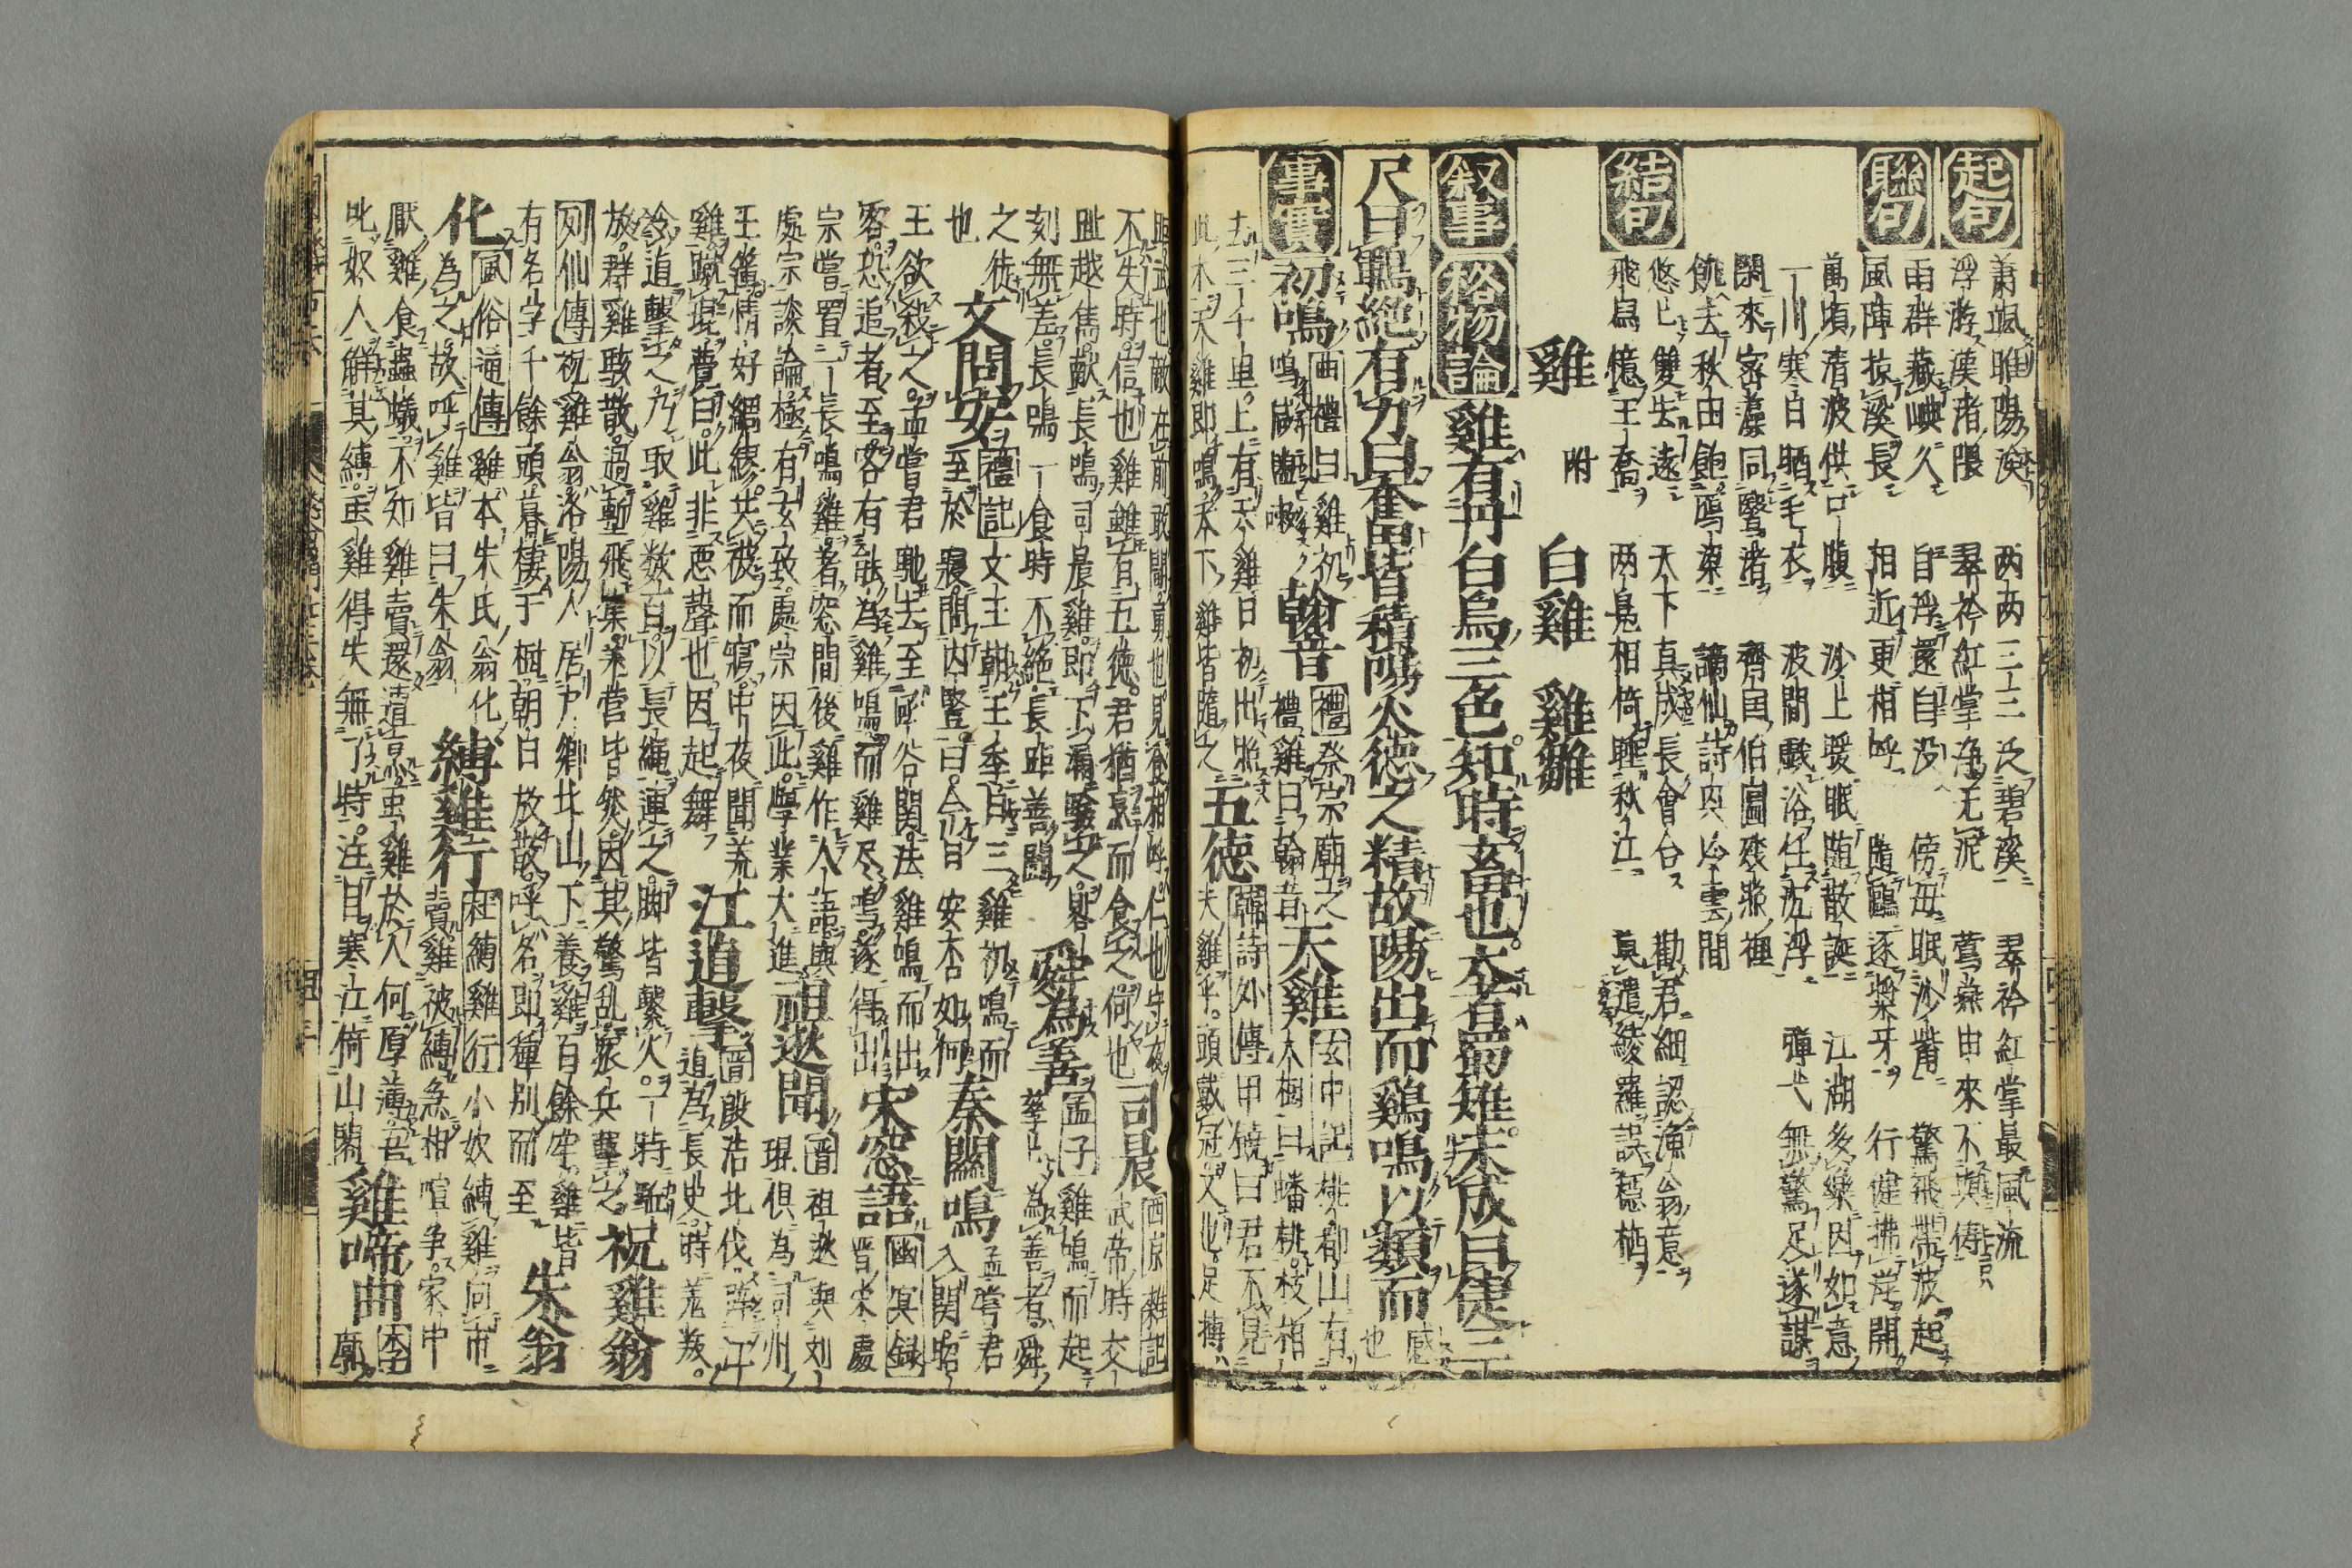 起句
蕭颯睢陽渙 两两三三泛碧溪 羣衿紅掌最風流
浮游漢渚隈 羣衿紅掌浄无泥 鶯燕由來不與傳
聯句
雨群藏嶼久 自浮還自没 傍母眠沙觜 驚飛帶波起
風陣掠溪長 相近更相呼 隨鷗逐槳牙 行健拂萍開
萬頃清波供口腹 沙上暖眠随散誕 江湖多樂因如意
一川寒日晒毛衣 波間戯浴任沉浮 彈弋無驚足遂謀
閑來密藻同翳渚 齊国伯圖殘照裡
飽去秋田飽雁粱 謫仙詩興冷雲間
結句
悠已雙去遠 天下真成長會合 勸君細認漁翁意
飛舄憶王喬 两鳧相倚睡秋江 莫遣綾羅誤穩栖
雞 附 白雞 雞雛
叙事 格物論 雞有丹白烏三色知時畜也大者蜀雉未成曰健三
尺曰鶤絶有力曰奮皆積陽火徳之精故陽出而鷄鳴以類而感也
事實 初鳴 曲禮曰雞初鳴咸盥漱 翰音 禮祭宗廟之禮雞曰翰音 天雞 玄中記桃都山有大樹曰蟠桃枝相
去三千里上有天雞日初出照此木天雞即鳴天下雞皆随之 五徳 韓詩外傳田饒曰君不見夫雞乎頭戴冠文也足搏
距武也敵在前敢鬪勇也見食相呼仁也守夜不失時信也雞雖有五徳君猶烹而食之何也 司晨 西京雜記武帝時交
趾越雋献長鳴司晨雞即下漏驗之晷刻無差長鳴一食時不絶長距善鬪 舜為善 孟子雞鳴而起孳孳為善者舜
之徒也 文問安 禮記文王朝王季日三雞初鳴而至於寝問内豎曰今日安否如何 秦關鳴 孟嘗君入関昭
王欲殺之孟嘗君馳去至函谷関法雞鳴而出客恐追者至客有能為雞鳴而雞尽鳴遂得出 宋窓語 幽冥録晋宋處
宗嘗置一長鳴雞著窓間後雞作人語與處宗談論極有玄致處宗因此學業大進 祖逖聞 晋祖逖與刘琨俱為司州
主簿情好綢繆共被而寢中夜聞荒雞蹴琨覺曰此非悪聲也因起舞 江逌撃 晋殷浩北伐 江逌為長史時羌叛
浩令逌撃之乃取雞数百以長繩連之脚皆繫火一時放群雞駭散過塹飛集羌営皆然因其驚乱衆兵撃之 祝雞翁
列仙傳祝雞翁洛陽人居尸鄉北山下養雞百餘年雞皆有名字千餘頭暮棲于樹朝日放散呼名即種別而至 朱翁
化 風俗通傳雞本朱氏翁化為之故呼雞皆曰朱翁 縛雞行 杜縛雞行小奴縛雞向市賣雞被縛急相喧争家中
厭雞食蟲蟻不知雞賣還遭烹虫雞於人何厚薄吾叱奴人解其縛虫雞得失無了時注目寒江倚山閣 雞啼曲 李廓